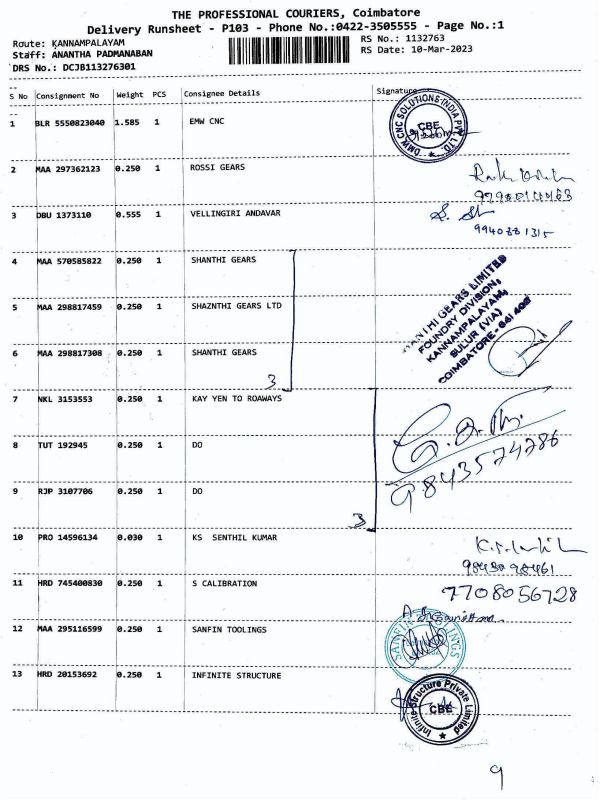 THE PROFESSIONAL COURIERS, Coimbatore
Delivery Runsheet - P103 - Phone No.:0422-3505555 - Page No.:1
Route: KANNAMPALAYAM
Staff: ANANTHA PADMANABAN
DRS No.: DCJB113276301
RS No.: 1132763
RS Date: 10-Mar-2023
S No Consignment No Weight PCS Consignee Details Signature
1 BLR 5550823040 1.585 1 EMW CNC
DMW CNC SOLUTIONS INDIA PVT LTD.
CBE
2 MAA 297362123 0.250 1 ROSSI GEARS
3 DBU 1373110 0.555 1 VELLINGIRI ANDAVAR
4 MAA 570585822 0.250 1 SHANTHI GEARS
5 MAA 298817459 0.250 1 SHAZNTHI GEARS LTD
6 MAA 298817308 0.250 1 SHANTHI GEARS
3
SHANTHI GEARS LIMITED
FOUNDRY DIVISION,
KANNAMPALAYAM,
SULUR (VIA)
COIMBATORE - 641 402
7 NKL 3153553 0.250 1 KAY YEN TO ROAWAYS
8 TUT 192945 0.250 1 DO
9 RJP 3107706 0.250 1 DO
3
9843574786
10 PRO 14596134 0.030 1 KS SENTHIL KUMAR
11 HRD 745400830 0.250 1 S CALIBRATION
7708056728
12 MAA 295116599 0.250 1 SANFIN TOOLINGS
SANFIN TOOLINGS
13 HRD 20153692 0.250 1 INFINITE STRUCTURE
Infinite Structure Private Limited
CBE
9